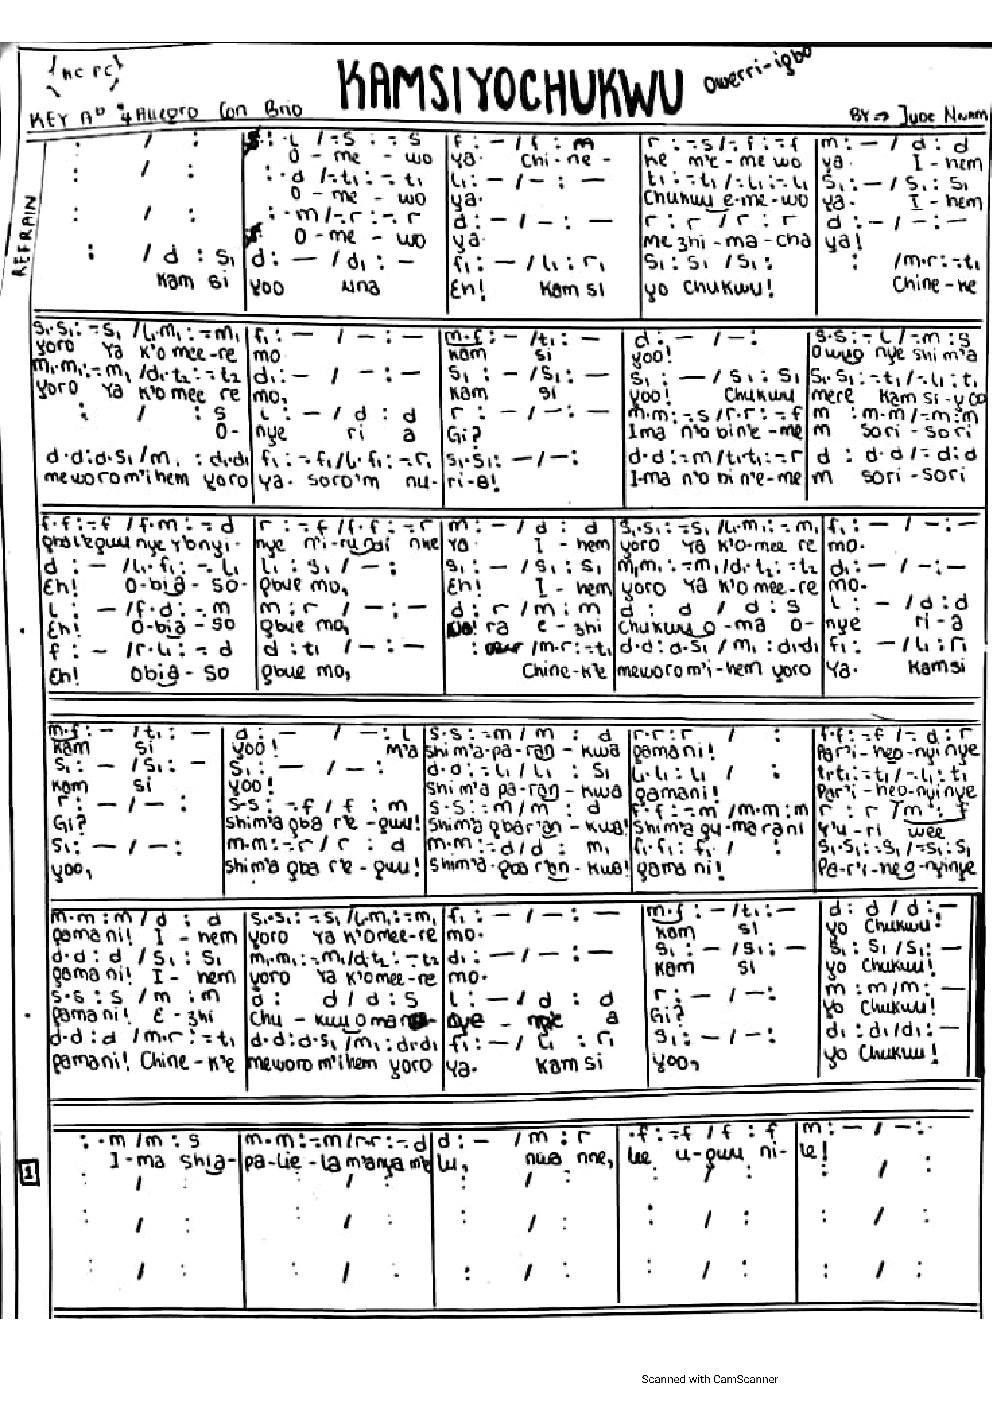 {nc rc}
KAMSIYOCHUKWU
Owerri-igbo
KEY Ab 4/4 Allegro Con Brio
BY → Jude Nnam
REFRAIN
: / : | s : - l / - s : - s | f : - / f : m | r : - s / - f : - f | m : - / d : d
O - me - wo ya. Chi-ne - ke m'e-me wo ya. I - hem
: / : | : - d / - t₁ : - t₁ | l₁ : - / - : - | t₁ : - t₁ / - l₁ : - l₁ | s₁ : - / s₁ : s₁
O - me - wo ya. Chukwu e-me-wo ya. I - hem
: / : | : - m / - r : - r | d : - / - : - | r : r / r : r | d : - / - : -
O - me - wo ya. Me zhi-ma-cha ya!
: / d : s₁ | d : - / d₁ : - | f₁ : - / l₁ : r₁ | s₁ : s₁ / s₁ : | : / m.r : - t₁
Kam si yoo Nna Eh! Kam si yo Chukwu! Chine-ke
s₁.s₁ : - s₁ / l₁.m₁ : - m₁ | f₁ : - / - : - | m.f : - / t₁ : - | d : - / - : | s.s : - l / - m : s
yoro Ya k'o mee-re mo. kam si yoo! Owuo nye shi m'a
m₁.m₁ : - m₁ / d₁.t₂ : - t₂ | d₁ : - / - : - | s₁ : - / s₁ : - | s₁ : - / s₁ : s₁ | s₁.s₁ : - t₁ / - l₁ : t₁
yoro Ya k'o mee re mo, kam si yoo! Chukwu mere Kam si-yoo
: / : s | l : - / d : d | r : - / - : - | m.m : - s / r.r : - f | m : m.m / - m : m
O- nye ri a Gi? Ima n'o bin'e-me m sori - sori
d.d : d.s₁ / m₁ : d₁.d₁ | f₁ : - f₁ / l₁.f₁ : - r₁ | s₁.s₁ : - / - : | d.d : - m / t₁.t₁ : - r | d : d.d / - d : d
meworom'ihem yoro ya. soro'm nu- ri-a! I-ma n'o bi n'e-me m sori -sori
f.f : - f / f.m : - d | r : - f / f.f : - r | m : - / d : d | s₁.s₁ : - s₁ / l₁.m₁ : - m₁ | f₁ : - / - : -
nye n'i-ru ndi nke Ya. I - hem yoro Ya k'o-mee re mo.
d : - / l₁.f₁ : - l₁ | l₁ : s₁ / - : | s₁ : - / s₁ : s₁ | m₁.m₁ : - m₁ / d₁.t₂ : - t₂ | d₁ : - / - : -
Eh! O-bia-so- gbue mo, Eh! I - hem yoro Ya k'o-mee-re mo.
l : - / f.d : - m | m : r / - : - | d : r / m : m | d : d / d : s | l : - / d : d
Eh! O-bia-so gbue mo, ra e-zhi Chukwu o-ma O- nye ri-a
f : - / r.l₁ : - d | d : t₁ / - : - | : / m.r : - t₁ | d.d : d.s₁ / m₁ : d₁.d₁ | f₁ : - / l₁ : r₁
Eh! Obia - so gbue mo, Chine-k'e meworom'i-hem yoro Ya. Kamsi
m.f : - / t₁ : - | d : - / - : l | s.s : - m / m : d | r.r : r / : | f.f : - f / - d : r
kam si yoo! m'a shi m'a-pa-ran - kwa gamani! Par'i-heo-nyi nye
s₁ : - / s₁ : - | s₁ : - / - : | d.d : - l₁ / l₁ : s₁ | l₁.l₁ : l₁ / : | t₁.t₁ : - t₁ / - l₁ : t₁
kam si yoo! shi m'a pa-ran - kwa gamani! Par'i-heo-nyi nye
r : - / - : | s.s : - f / f : m | s.s : - m / m : d | f.f : - m / m.m : m | r : r / m : f
Gi? shim'a gba r'e - gwu! shim'a gbar'an - kwa! shim'a gu-ma rani Y'u - ri wee
s₁ : - / - : | m.m : - r / r : d | m.m : - d / d : m₁ | f₁.f₁ : f₁ / : | s₁.s₁ : - s₁ / - s₁ : s₁
yoo, shim'a gba r'e - gwu! shim'a-gba r'an - kwa! gama ni! Pa-r'i-heo-nyinye
m.m : m / d : d | s₁.s₁ : - s₁ / l₁.m₁ : - m₁ | f₁ : - / - : - | m.f : - / t₁ : - | d : d / d : -
gamani! I - hem yoro Ya k'omee-re mo. kam si yo Chukwu!
d.d : d / s₁ : s₁ | m₁.m₁ : - m₁ / d₁.t₂ : - t₂ | d₁ : - / - : - | s₁ : - / s₁ : - | s₁ : s₁ / s₁ : -
gamani! I - hem yoro Ya k'omee-re mo. kam si yo Chukwu!
s.s : s / m : m | d : d / d : s | l : - / d : d | r : - / - : | m : m / m : -
gamani! E - zhi Chu - kwu oma nye a Gi? yo Chukwu!
d.d : d / m.r : - t₁ | d.d : d.s₁ / m₁ : d₁.d₁ | f₁ : - / l₁ : r₁ | s₁ : - / - : | d₁ : d₁ / d₁ : -
gamani! Chine-k'e meworom'ihem yoro Ya. Kam si yoo, yo Chukwu!
1
: - m / m : s | m.m : - m / r.r : - d | d : - / m : r | . f : - f / f : f | m : - / - : -
I-ma shia- pa-lie-la m'anya m'e lu, nwa nne, lee u-gwu ni- le!
: / : | : / : | : / : | : / : | : / :
: / : | : / : | : / : | : / : | : / :
: / : | : / : | : / : | : / : | : / :
Scanned with CamScanner